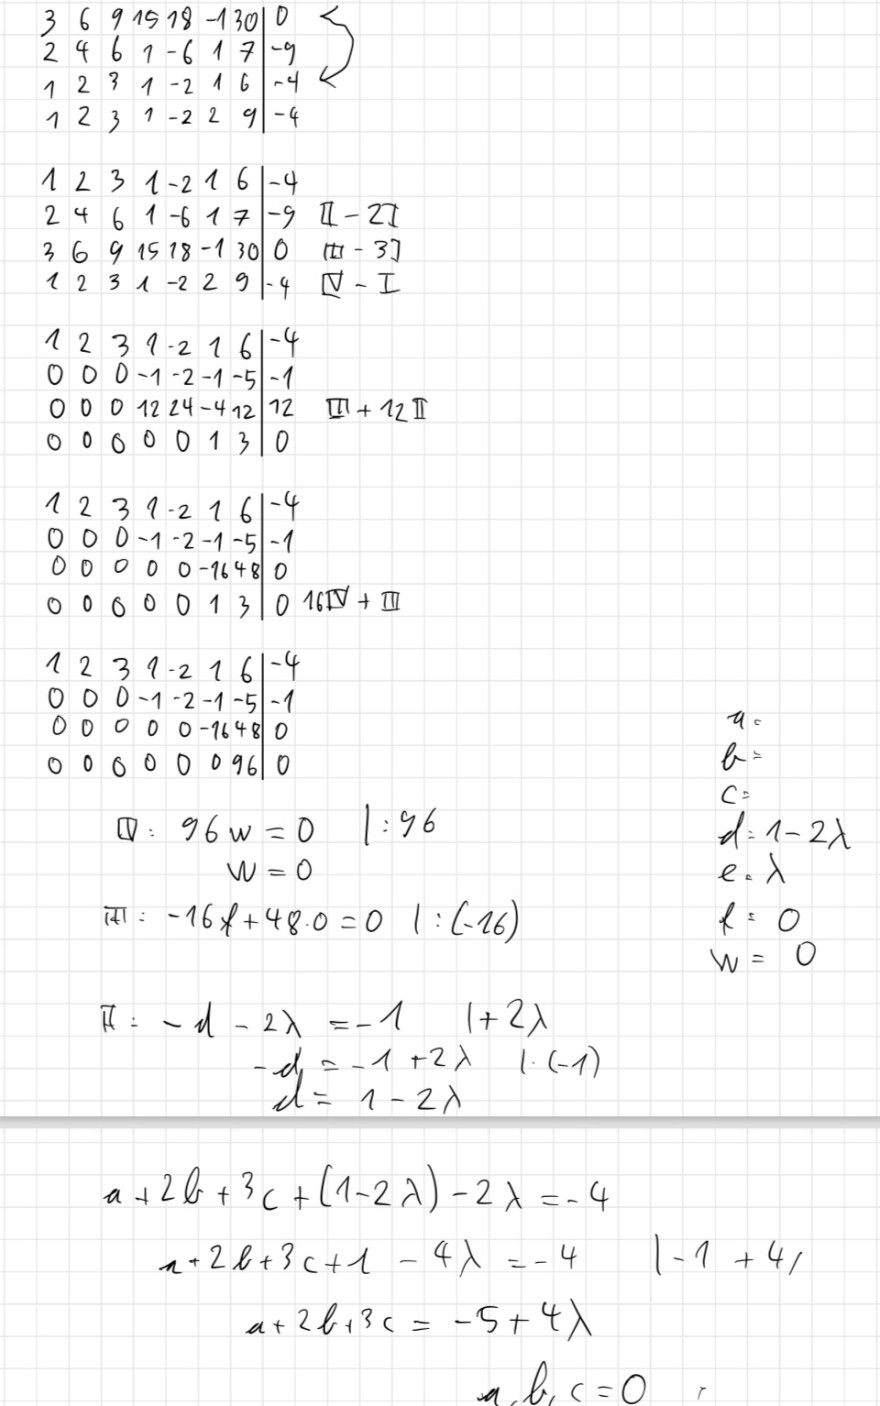 3 6 9 15 18 -1 30 | 0
2 4 6 1 -6 1 7 | -9
1 2 3 1 -2 1 6 | -4
1 2 3 1 -2 2 9 | -4
1 2 3 1 -2 1 6 | -4
2 4 6 1 -6 1 7 | -9 II - 2I
3 6 9 15 18 -1 30 | 0 III - 3I
1 2 3 1 -2 2 9 | -4 IV - I
1 2 3 1 -2 1 6 | -4
0 0 0 -1 -2 -1 -5 | -1
0 0 0 12 24 -4 12 | 12 III + 12II
0 0 0 0 0 1 3 | 0
1 2 3 1 -2 1 6 | -4
0 0 0 -1 -2 -1 -5 | -1
0 0 0 0 0 -16 48 | 0
0 0 0 0 0 1 3 | 0 16IV + III
1 2 3 1 -2 1 6 | -4
0 0 0 -1 -2 -1 -5 | -1
0 0 0 0 0 -16 48 | 0
0 0 0 0 0 0 96 | 0
IV: 96w = 0 | :96
w = 0
III: -16f + 48·0 = 0 | :(-16)
II: -d - 2λ = -1 | +2λ
-d = -1 + 2λ | ·(-1)
d = 1 - 2λ
a=
b=
c=
d = 1 - 2λ
e = λ
f = 0
w = 0
a + 2b + 3c + (1-2λ) - 2λ = -4
a + 2b + 3c + 1 - 4λ = -4 | -1 + 4
a + 2b + 3c = -5 + 4λ
a, b, c = 0